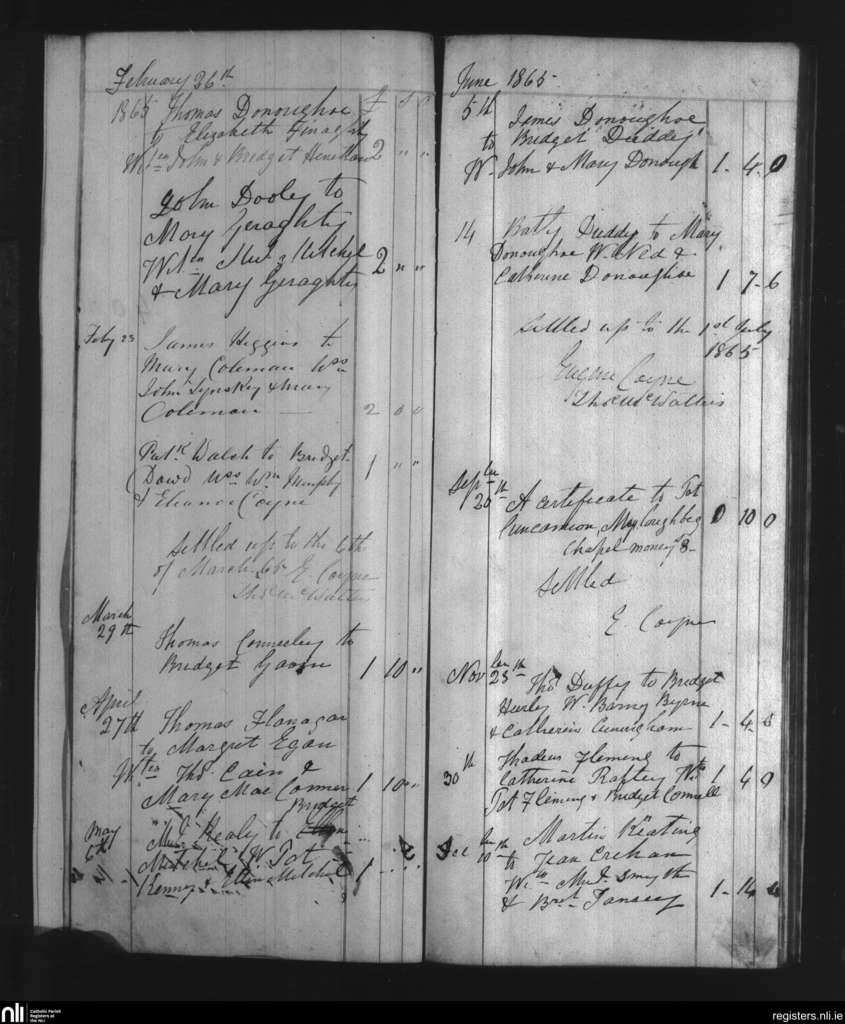 February 26th
1865 Thomas Donoughoe £ s
to Elizabeth Finaghty
Wtes John & Bridget 2 " "
John Dooly to
Mary Geraghty
Mitchel 2 " "
& Mary Geraghty
Feby 23 James Higgins to
Mary Coleman Wss
John Lynskey & Mary
Coleman — 2 0 "
Patk Walsh to Bridget 1 " "
Dowd Wss Wm Murphy
& Eleanor Coyne
Settled up to the 6th
of March 65 E Coyne
Thos McWalter
March
29th
Thomas Conneeley to
Bridget Gavin 1 10 "
April
27th Thomas Flanagan
to Margret Egan
Wtes Thos Cain & 1 10 "
Mary Mac
May
6th
Md Healy to Bridget
Mitchel W. Pat 1
Kenney & Ellen Mitchel
June 1865
5th James Donoughoe
to Bridget Duddy
W. John & Mary Donough 1 - 4 - 0
14 Batty Duddy to Mary
Donoughoe W. Ned &
Catherine Donoughoe 1 7 - 6
Settled up to the 1st July
1865
Eugene Coyne
Thos McWalter
Sepber
20th A certificate to Pat
Loughbeg 0 10 0
Chapel money 8 -
Settled
E Coyne
Novber
25th Thos Duffy to Bridget
Hurley W. Barny Byrne
& Catherin Cunningham 1 - 4 - 0
30th Thadeus Fleming to
Catherine Raftery Wtes 1 4 0
Pat Fleming & Bridget Connell
Decber
10th Martin Keating
to Jean Crehan
Wtes Michl Smyth
& Brgt Tansey 1 - 14
nli
Catholic Parish
Registers at
the NLI
registers.nli.ie